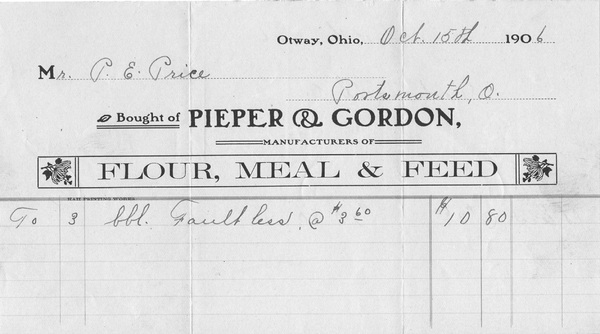 Otway, Ohio, Oct. 15th 1906
Mr. P. E. Price
Portsmouth, O.
Bought of PIEPER & GORDON,
MANUFACTURERS OF
FLOUR, MEAL & FEED
PRINTING WORKS
To 3 bbl. Faultless, @ $3 60 $10 80